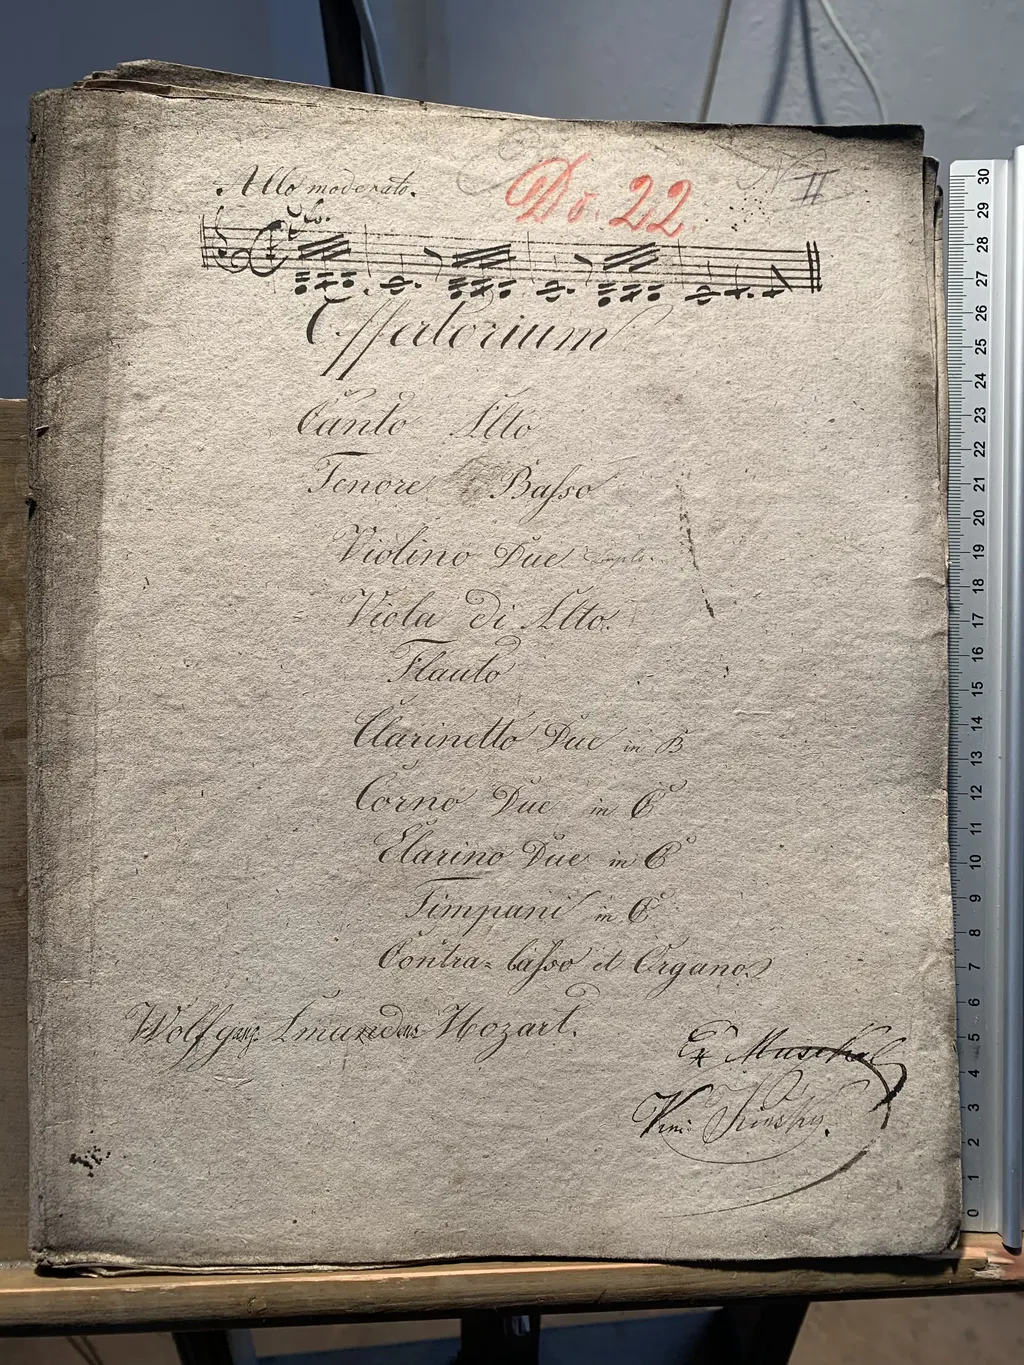 Do. 22.
II
Allo moderato.
Offertorium
Canto Alto
Tenore Basso
Violino Due
Viola di Alto.
Flauto
Clarinetto Due in B
Corno Due in C
Clarino Due in C
Timpani in C
Contra-basso et Organo.
Wolfgang Amandeus Mozart.
Ex Musikal
30
29
28
27
26
25
24
23
22
21
20
19
18
17
16
15
14
13
12
11
10
9
8
7
6
5
4
3
2
1
0